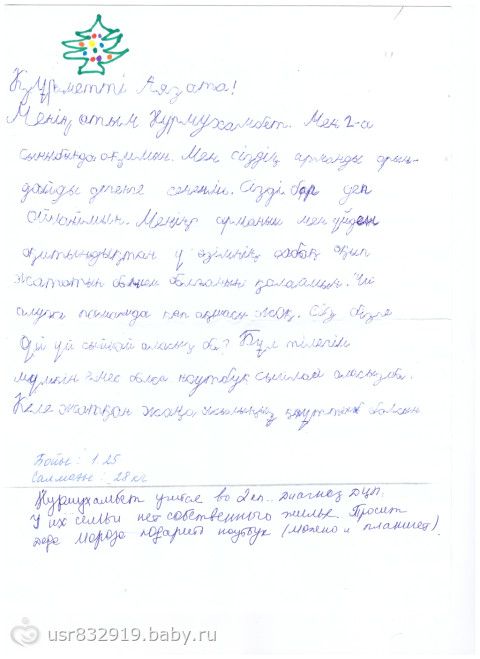 Құрметті Аязата!
Менің атым Нурмухамбет. Мен 2-а
сыныбында оқимын. Мен сіздің арманды орын-
дайды дегенге сенемін. Сізді бар деп
ойлаймын. Менің арманым мен үйден
оқитындықтан үйде өзімнің сабақ оқып
жататын бөлмем болғанын қалаймын.
жоқ. Сіз бізге
үй сыйлай аласыз ба? Бұл тілегім
мүмкін емес болса ноутбук сыйлай аласызба.
Келе жатқан жаңа жылыңыз құтты болсын
Бойы: 1.25
Салмағы: 28 кг
Нурмухамбет учится во 2 кл. Диагноз ДЦП.
У их семьи нет собственного жилье. Просит
деда Мороза подарить ноутбук (можно и планшет).
usr832919.baby.ru